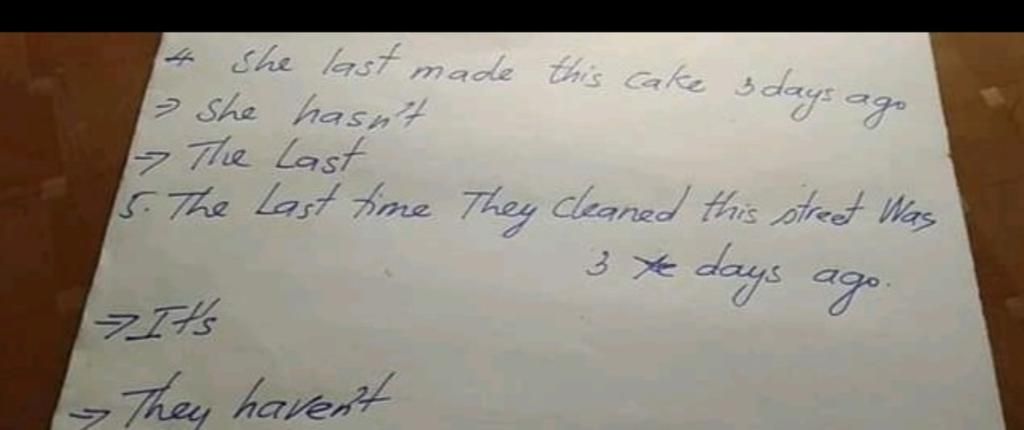 4 she last made this cake 3 days ago
→ She hasn't
→ The Last
5. The Last time They Cleaned this street Was
3 days ago.
→ It's
→ They haven't